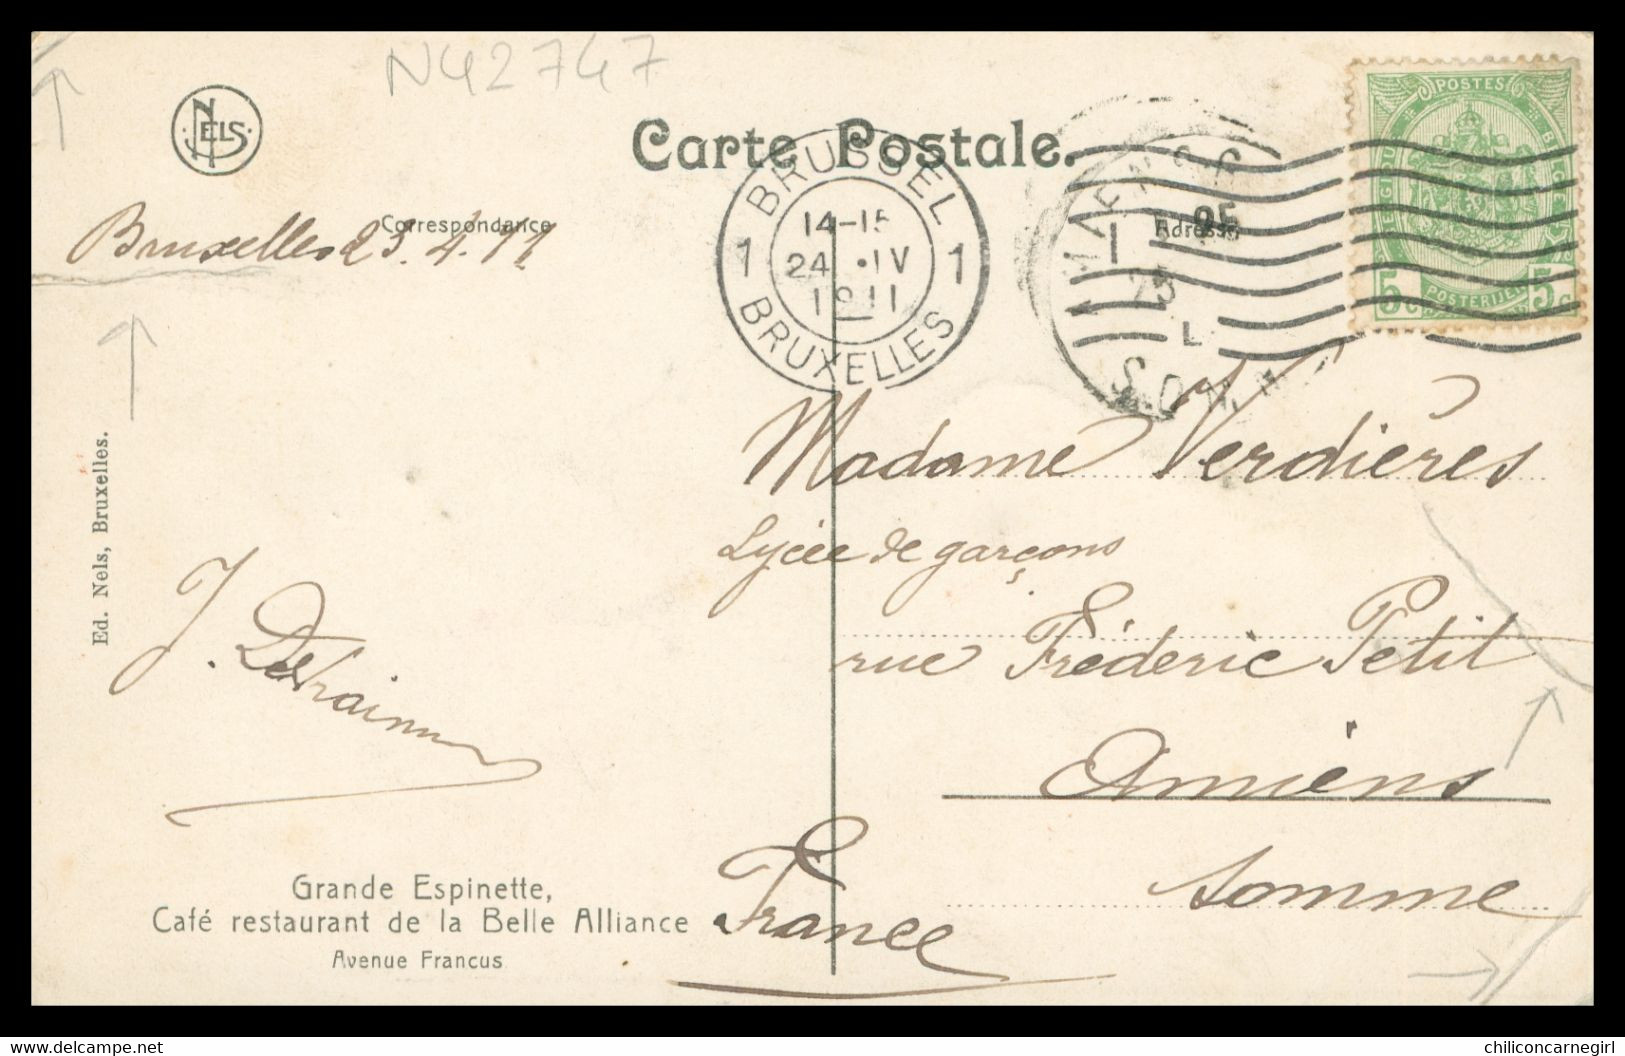 N42747
NELS
Carte Postale.
Correspondance
Adresse
Bruxelles 23.4.11
BRUSSEL
14-15
24 ·IV
1911
1 1
BRUXELLES
POSTES
POSTERIJEN
5c 5c
Madame Verdières
Lycée de garçons
rue Fréderic Petit
Amiens
Somme
France
Ed. Nels, Bruxelles.
Grande Espinette,
Café restaurant de la Belle Alliance
Avenue Francus
delcampe.net
chiliconcarnegirl